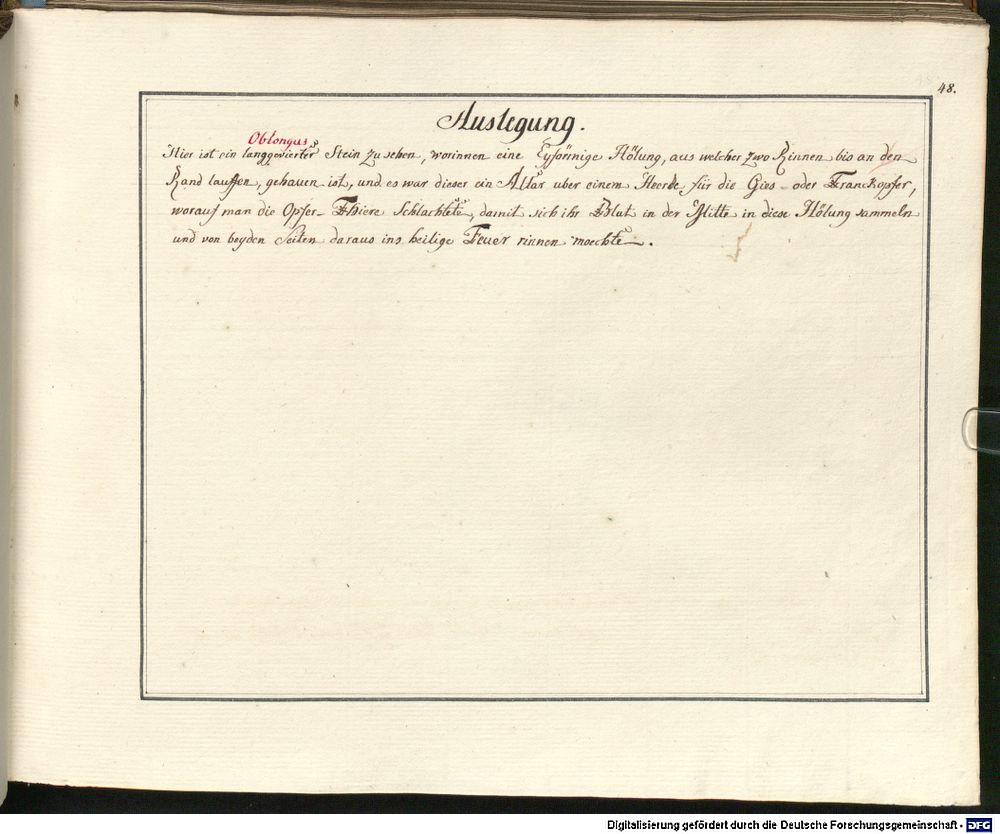 48.
Auslegung.
Oblongus
Hier ist ein langgevierter Stein zu sehen, worinnen eine Eyförmige Hölung, aus welcher zwo Rinnen bis an den
Rand lauffen, gehauen ist, und es war dieser ein Altar uber einem Heerde für die Gies- oder Tranckopfer,
worauf man die Opfer-Thiere Schlachtete, damit sich ihr Blut in der Mitte in diese Hölung sammeln
und von beyden Seiten daraus ins heilige Feuer rinnen moechte.
Digitalisierung gefördert durch die Deutsche Forschungsgemeinschaft - DFG